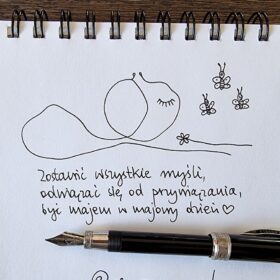 Zostawić wszystkie myśli,
odwiązać się od przywiązania,
być majem w majowy dzień♡